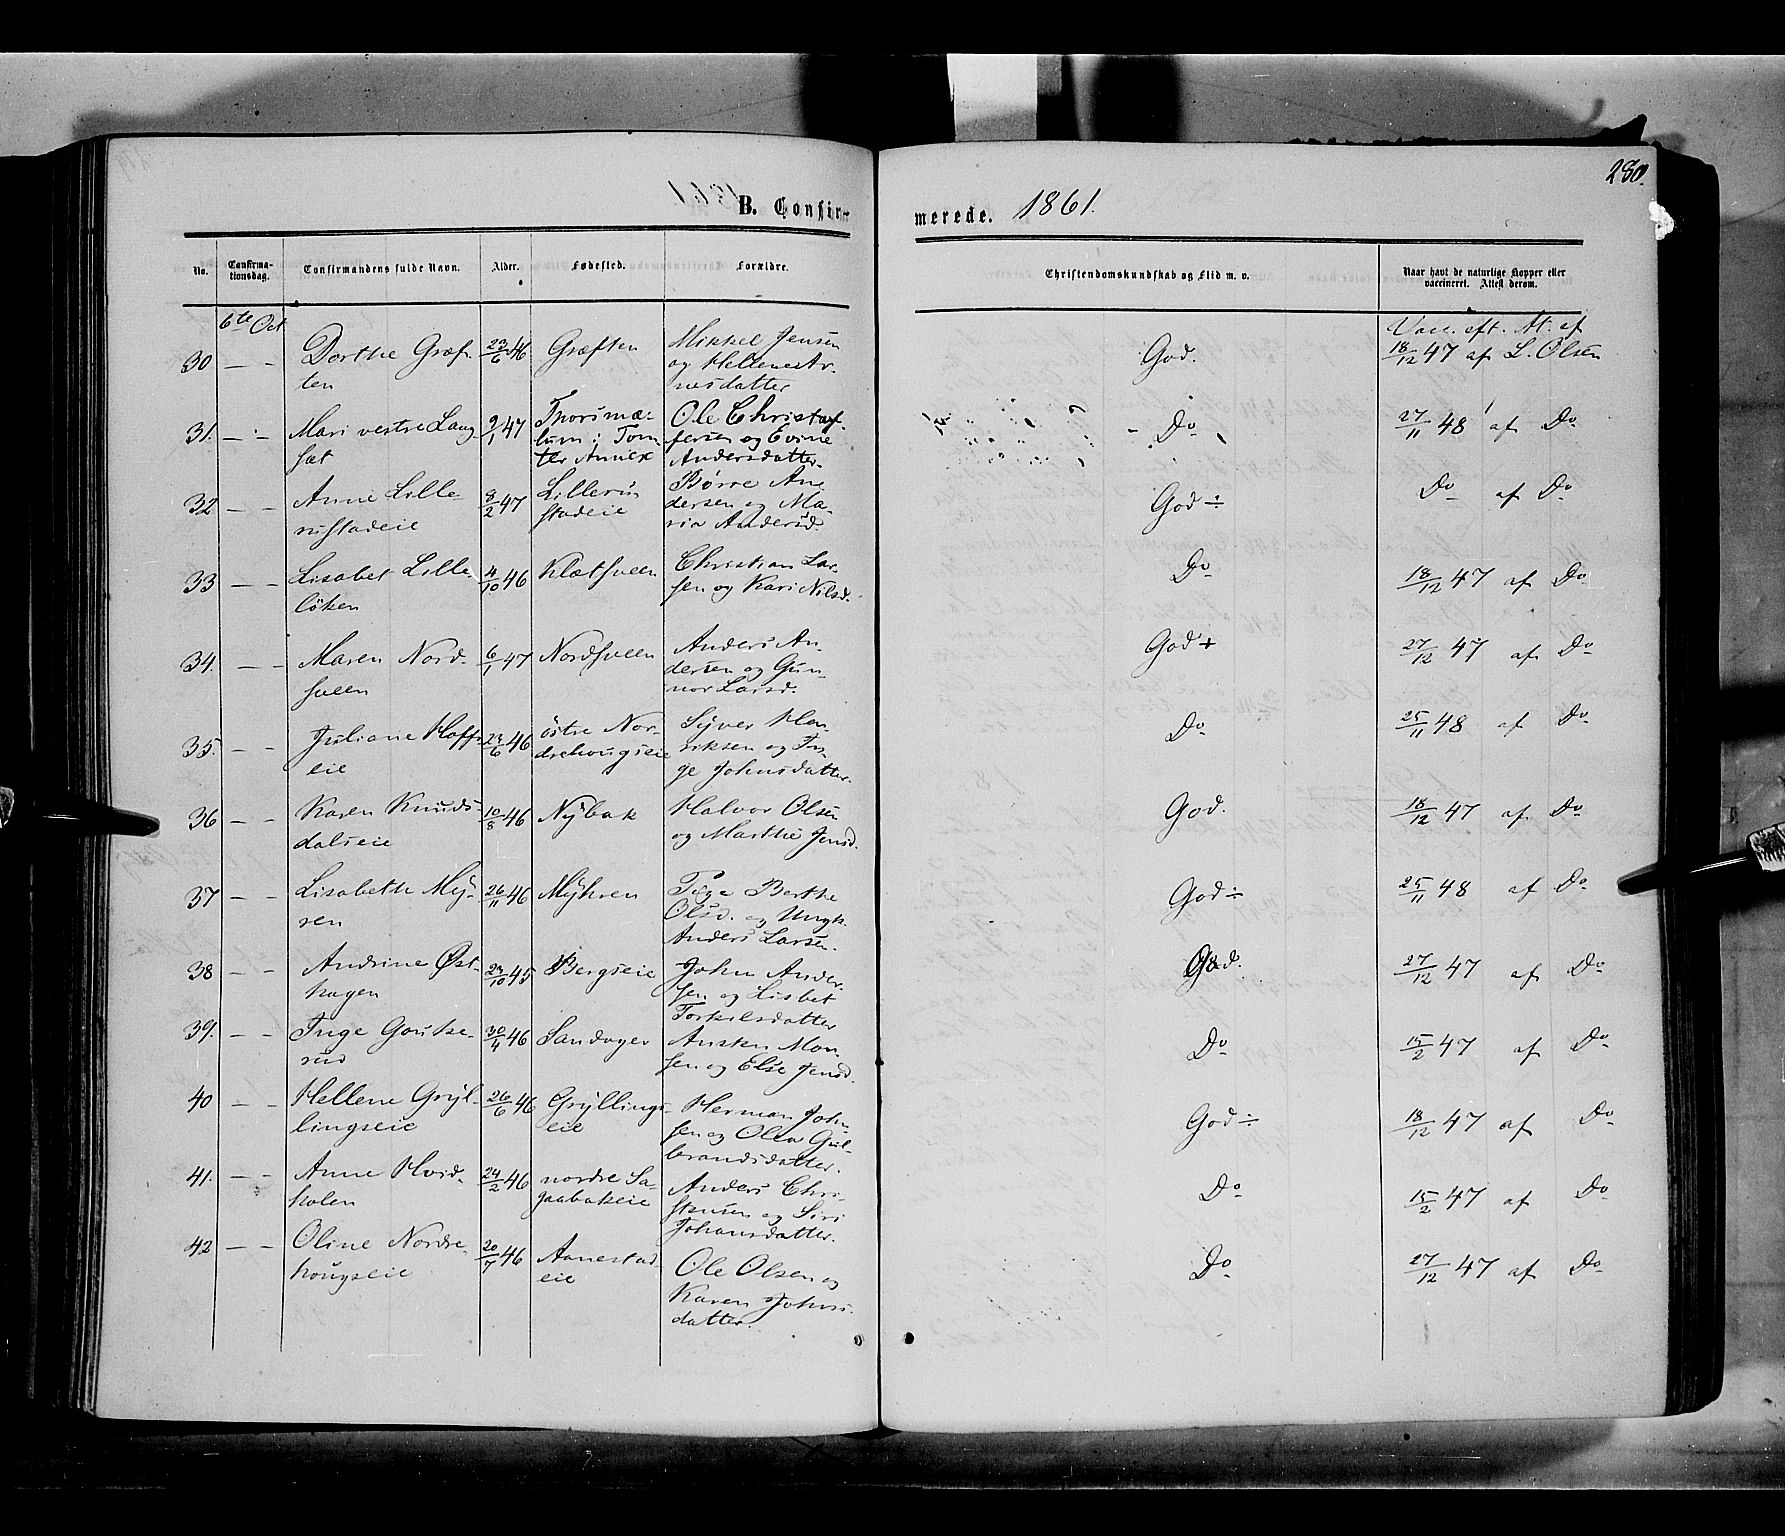 280.
B. Confir-
merede. 1861.
No. Confirma-tionsdag. Confirmandens fulde Navn. Alder. Fødested. Forældre. Christendomskundskab og Flid m. v. Naar havt de naturlige Kopper eller vaccineret. Attest derom.
6te Oct
30 — — Dorthe Græf-
ten
23/6 46 Græften
Mikkel Jensen
og Hellene Ar-
nesdatter
God.
Vacc. eft. At. af
18/12 47 af L. Olsen
31. — — Mari vestre Lang-
sæt
9/1 47
Thorsmæ-
lum i Tom
ter Annex
Ole Christof-
fersen og Evine
Andersdatter.
Do
27/11 48 af Do
32 — — Anne Lille-
rustadeie
8/2 47
Lilleru
stadeie
Børre An-
dersen og Ma-
ria Andersd.
God ÷
Do af Do
33 — — Lisabet Lille-
löken
4/10 46 Klætsveen
Christian Lar-
sen og Kari Nilsd.
Do
18/12 47 af Do
34. — — Maren Nord-
sveen
6/1 47 Nordsveen
Anders An-
dersen og Gun-
nor Larsd.
God +
27/12 47 af Do
35. — — Juliane Hoffs
eie
23/6 46
östre Nor-
drehougseie
Syver Hen-
riksen og In-
ge Johnsdatter.
Do
25/11 48 af Do
36 — — Karen Knuds-
dalseie
10/8 46 Nybak
Halvor Olsen
og Marthe Jensd.
God.
18/12 47 af Do
37 — — Lisabethe My-
ren
26/11 46 Myhren
Pige Berthe
Olsd. og Ungk.
Anders Larsen.
God ÷
25/11 48 af Do
38 — — Andrine Øst-
hagen
23/10 45 Bergseie
John Ander-
sen og Lisbet
Torkilsdatter
God.
27/12 47 af Do
39. — — Inge Gouke-
rud
30/4 46 Sandager
Ansten Mon-
sen og Else Jensd.
Do
15/2 47 af Do
40 — — Hellene Gryl-
lingseie
26/6 46
Gryllings-
eie
Herman Joh-
sen og Olea Gul-
brandsdatter.
God ÷
18/12 47 af Do
41. — — Anne Hvid-
kolen
24/2 46
nordre Sa-
gaabakeie
Anders Chri-
stensen og Siri
Johansdatter.
Do
15/2 47 af Do
42 — — Oline Nordre-
hougseie
20/7 46
Aanestad-
eie
Ole Olsen og
Karen Johns-
datter.
Do
27/12 47 af Do